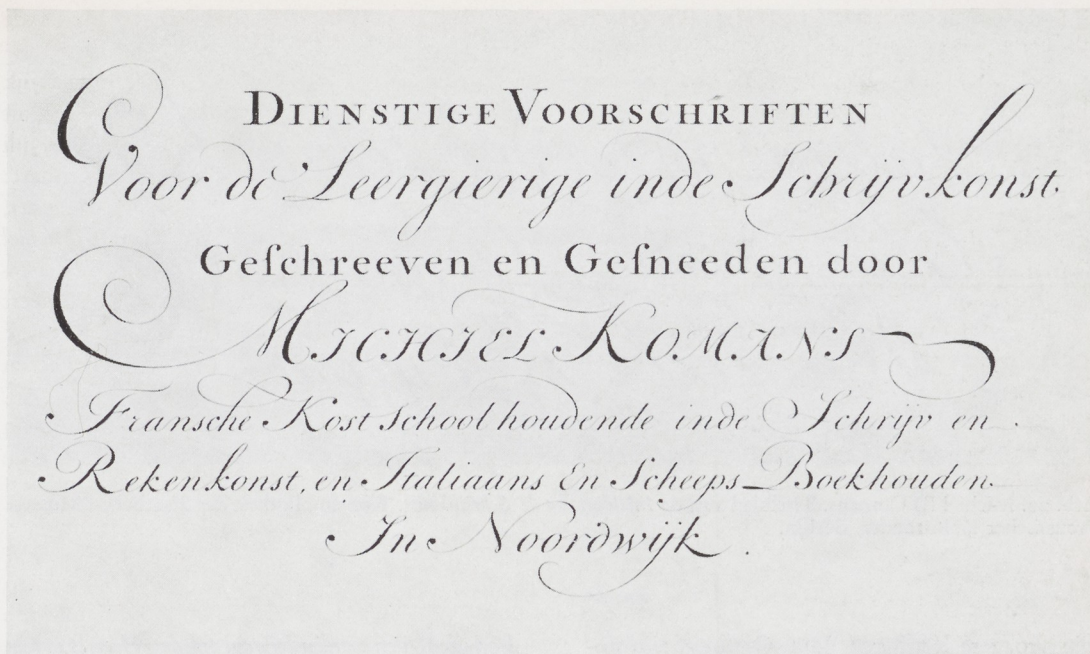 DIENSTIGE VOORSCHRIFTEN
Voor de Leergierige inde Schrijvkonst.
Geſchreeven en Geſneeden door
MICHIEL KOMANS
Fransche Kostschool houdende inde Schrijv en
Rekenkonst, en Italiaans En Scheeps Boekhouden
In Noordwijk.